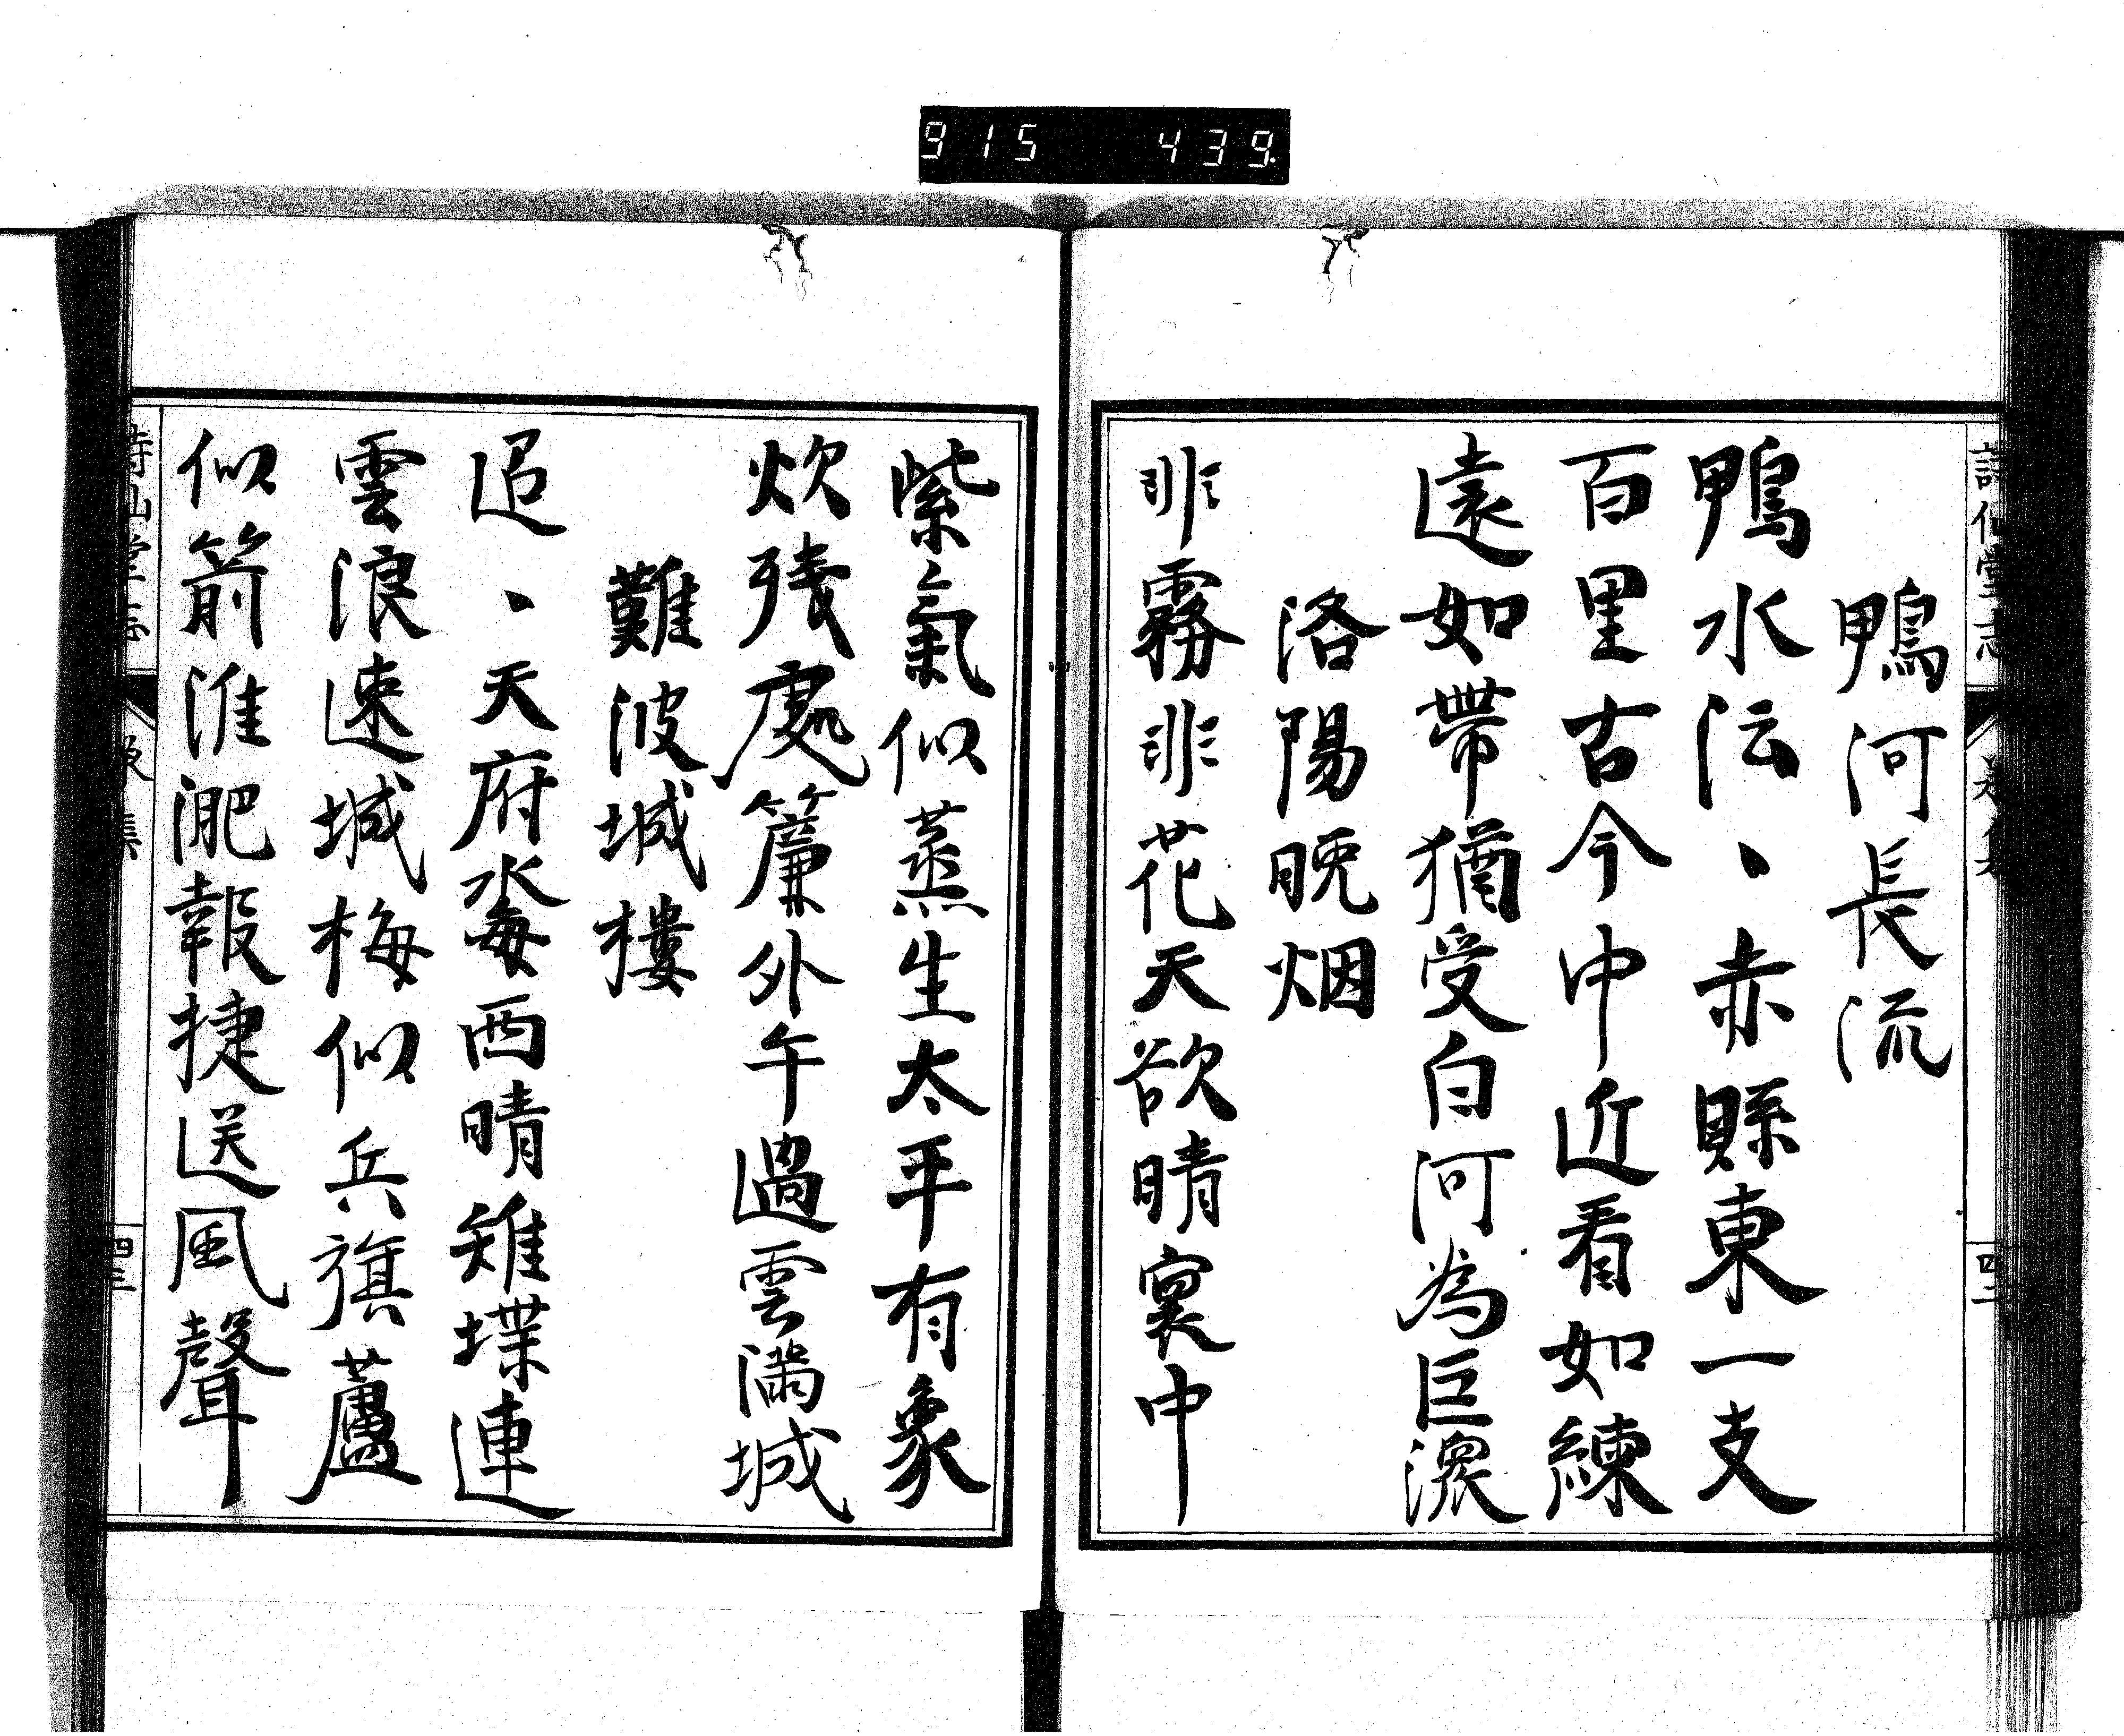 915 439.
鴨河長流
鴨水沄、赤縣東一支
百里古今中近看如練
遠如帶猶受白河為巨瀠
洛陽晩烟
非霧非花天欲晴裏中
紫氣似蒸生太平有象
炊残處簾外午過雲満城
難波城樓
迢、天府㴘西晴雉堞連
雲浪速城梅似兵旗蘆
似箭淮淝報捷送風聲
四三